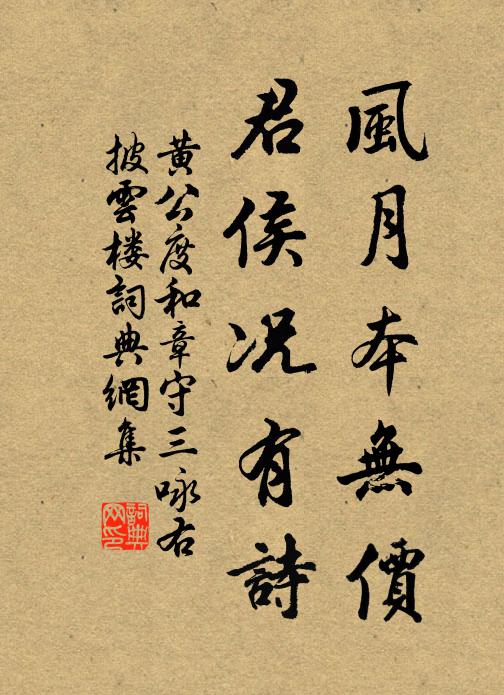 風月本無價
君侯況有詩
黃公度和章守三咏右
披雲樓詞典網集
詞典
网印